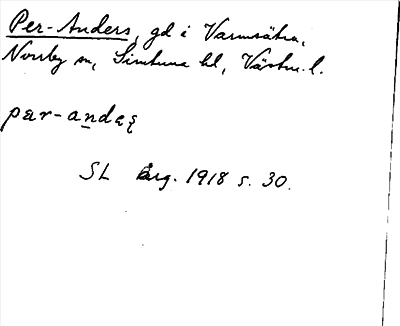 Per-Anders, gd i Varmsätra,
Norrby sn, Simtuna hd, Västm. l.
pær-andaʂ
SL årg. 1918 s. 30.